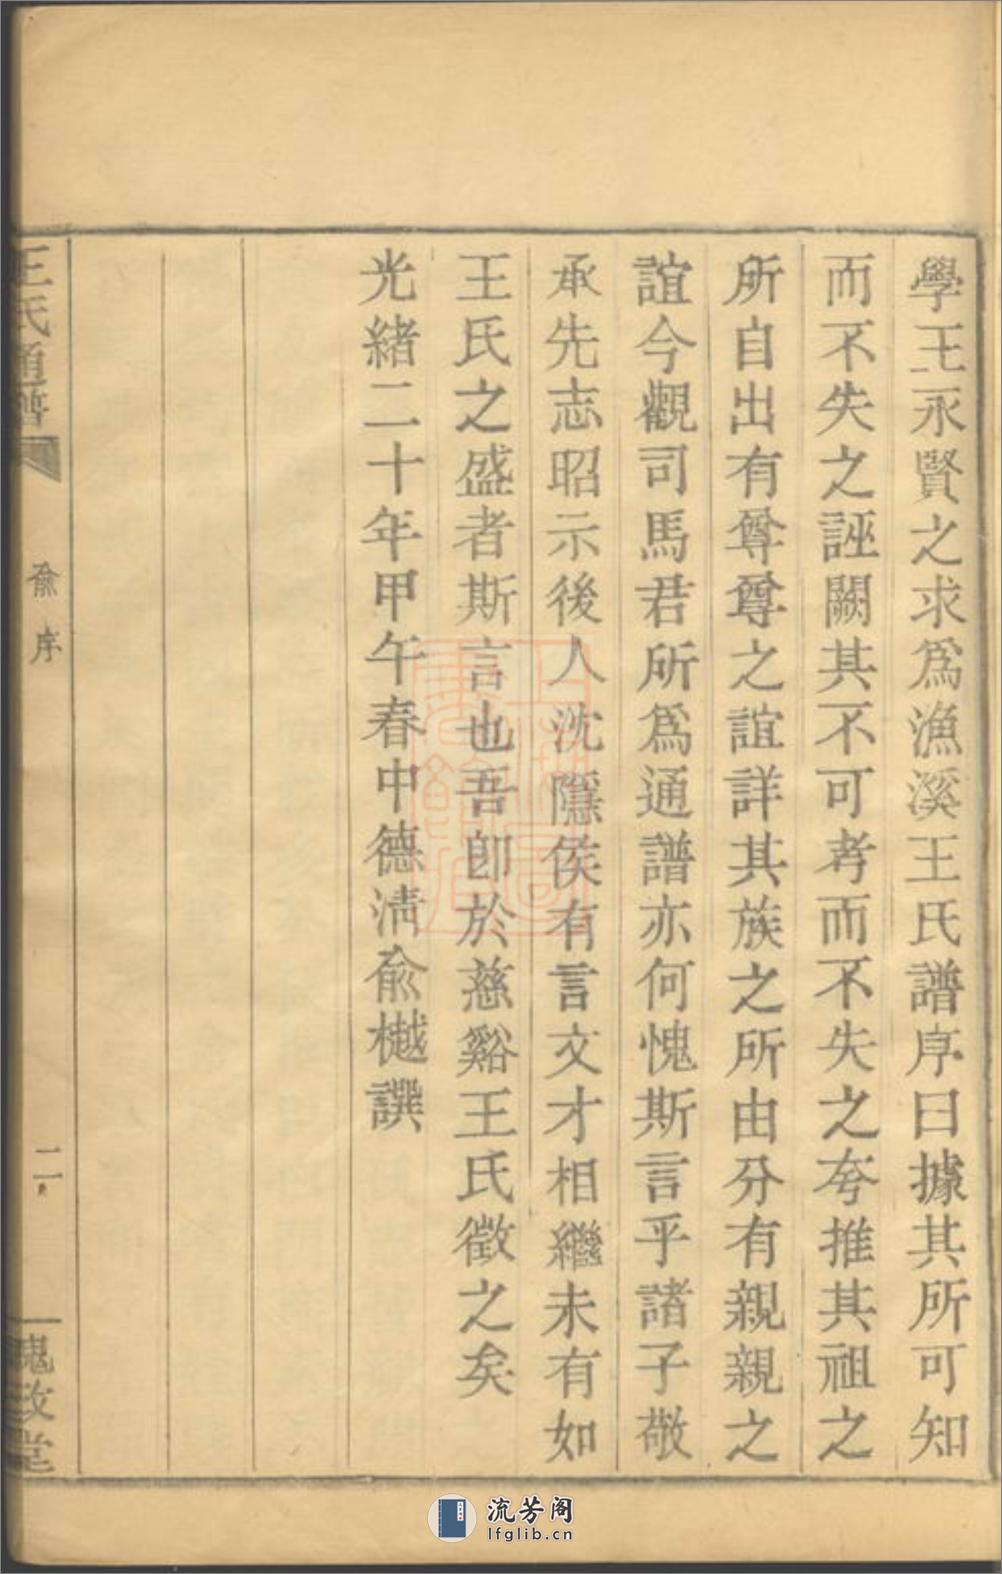 學王永賢之求爲漁溪王氏譜序曰據其所可知
而不失之誣闕其不可考而不失之夸推其祖之
所自出有尊尊之誼詳其族之所由分有親親之
誼今觀司馬君所爲通譜亦何愧斯言乎諸子敬
承先志昭示後人沈隱侯有言文才相繼未有如
王氏之盛者斯言也吾卽於慈谿王氏徵之矣
光緒二十年甲午春中德淸兪樾譔
王氏通譜
兪序
二
槐政堂
流芳阁
lfglib.cn